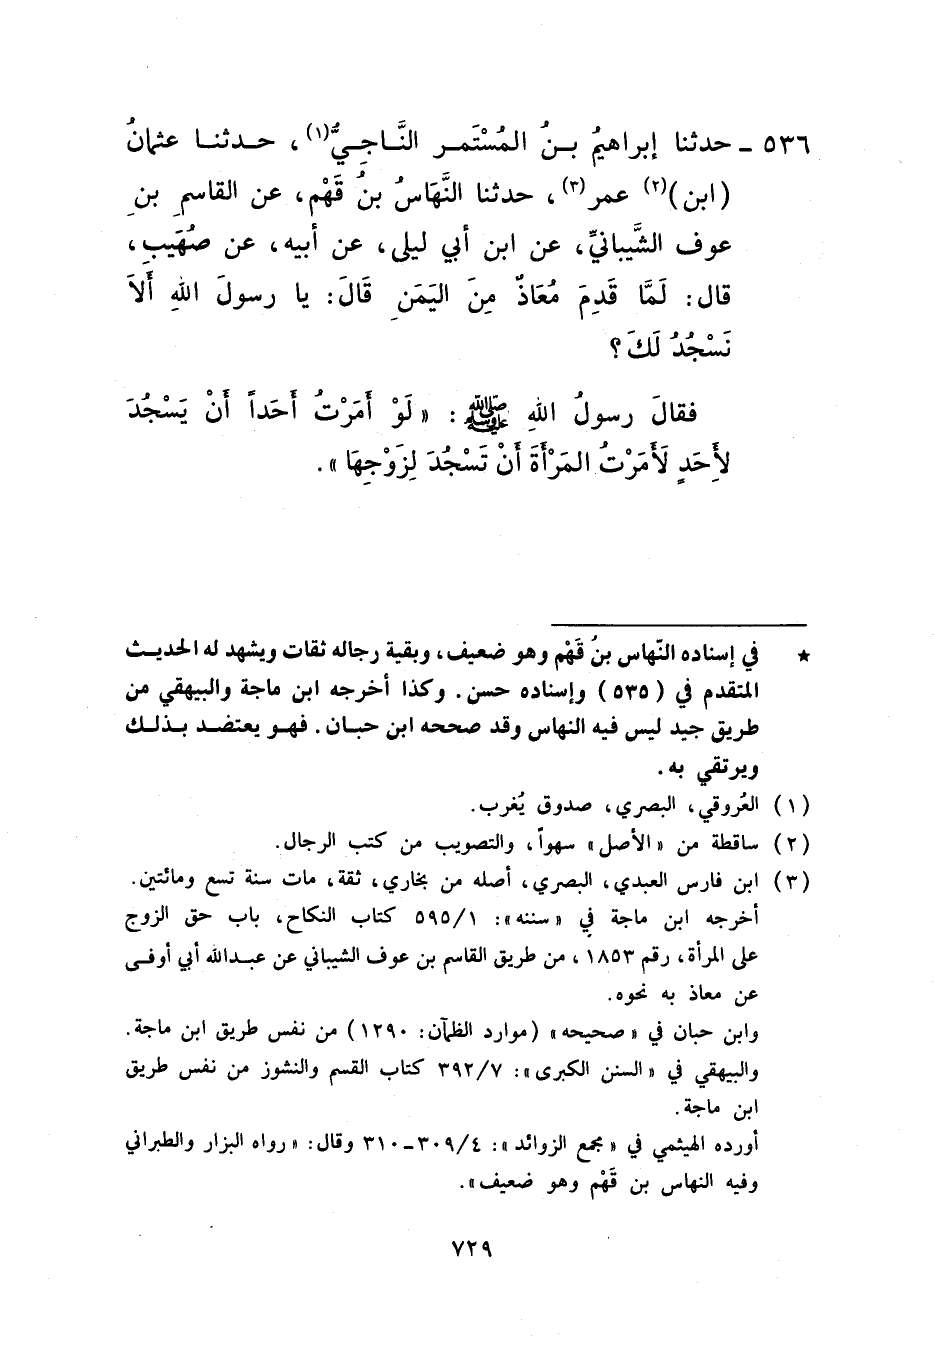 ٥٣٦ ـ حدثنا إبراهيمُ بـنُ المُسْتَمـر النَّـاجـيُّ(١)، حـدثنـا عثمانُ
(ابن)(٢) عمر(٣)، حدثنا النَّهَاسُ بنُ قَهْم، عن القاسمِ بنِ
عوف الشَّيبانيِّ، عن ابن أبي ليلى، عن أبيه، عن صُهَيبِ،
قال: لَمَّا قَدِمَ مُعَاذٌ مِنَ اليَمَنِ قَالَ: يا رسولَ اللهِ أَلاَ
نَسْجُدُ لَكَ؟
فقالَ رسولُ اللهِ ﷺ: «لَوْ أَمَرْتُ أَحَداً أَنْ يَسْجُدَ
لأَحَدٍ لَأَمَرْتُ المَرْأَةَ أَنْ تَسْجُدَ لِزَوْجِهَا».
★ في إسناده النّهاس بنُ قَهْم وهو ضعيف، وبقية رجاله ثقات ويشهد له الحديث
المتقدم في (٥٣٥) وإسناده حسن. وكذا أخرجه ابن ماجة والبيهقي من
طريق جيد ليس فيه النهاس وقد صححه ابن حبان. فهـو يعتضـد بـذلـك
ويرتقي به.
(١) العُروقي، البصري، صدوق يُغرب.
(٢) ساقطة من «الأصل» سهواً، والتصويب من كتب الرجال.
(٣) ابن فارس العبدي، البصري، أصله من بخاري، ثقة، مات سنة تسع ومائتين.
أخرجه ابن ماجة في «سننه»: ٥٩٥/١ كتاب النكاح، باب حق الزوج
على المرأة، رقم ١٨٥٣، من طريق القاسم بن عوف الشيباني عن عبدالله أبي أوفـى
عن معاذ به نحوه.
وابن حبان في «صحيحه» (موارد الظمآن: ١٢٩٠) من نفس طريق ابن ماجة.
والبيهقي في «السنن الكبرى»: ٣٩٢/٧ كتاب القسم والنشوز من نفس طريق
ابن ماجة.
أورده الهيثمي في «مجمع الزوائد»: ٣٠٩/٤ـ٣١٠ وقال: «رواه البزار والطبراني
وفيه النهاس بن قَهْم وهو ضعيف».
٧٢٩